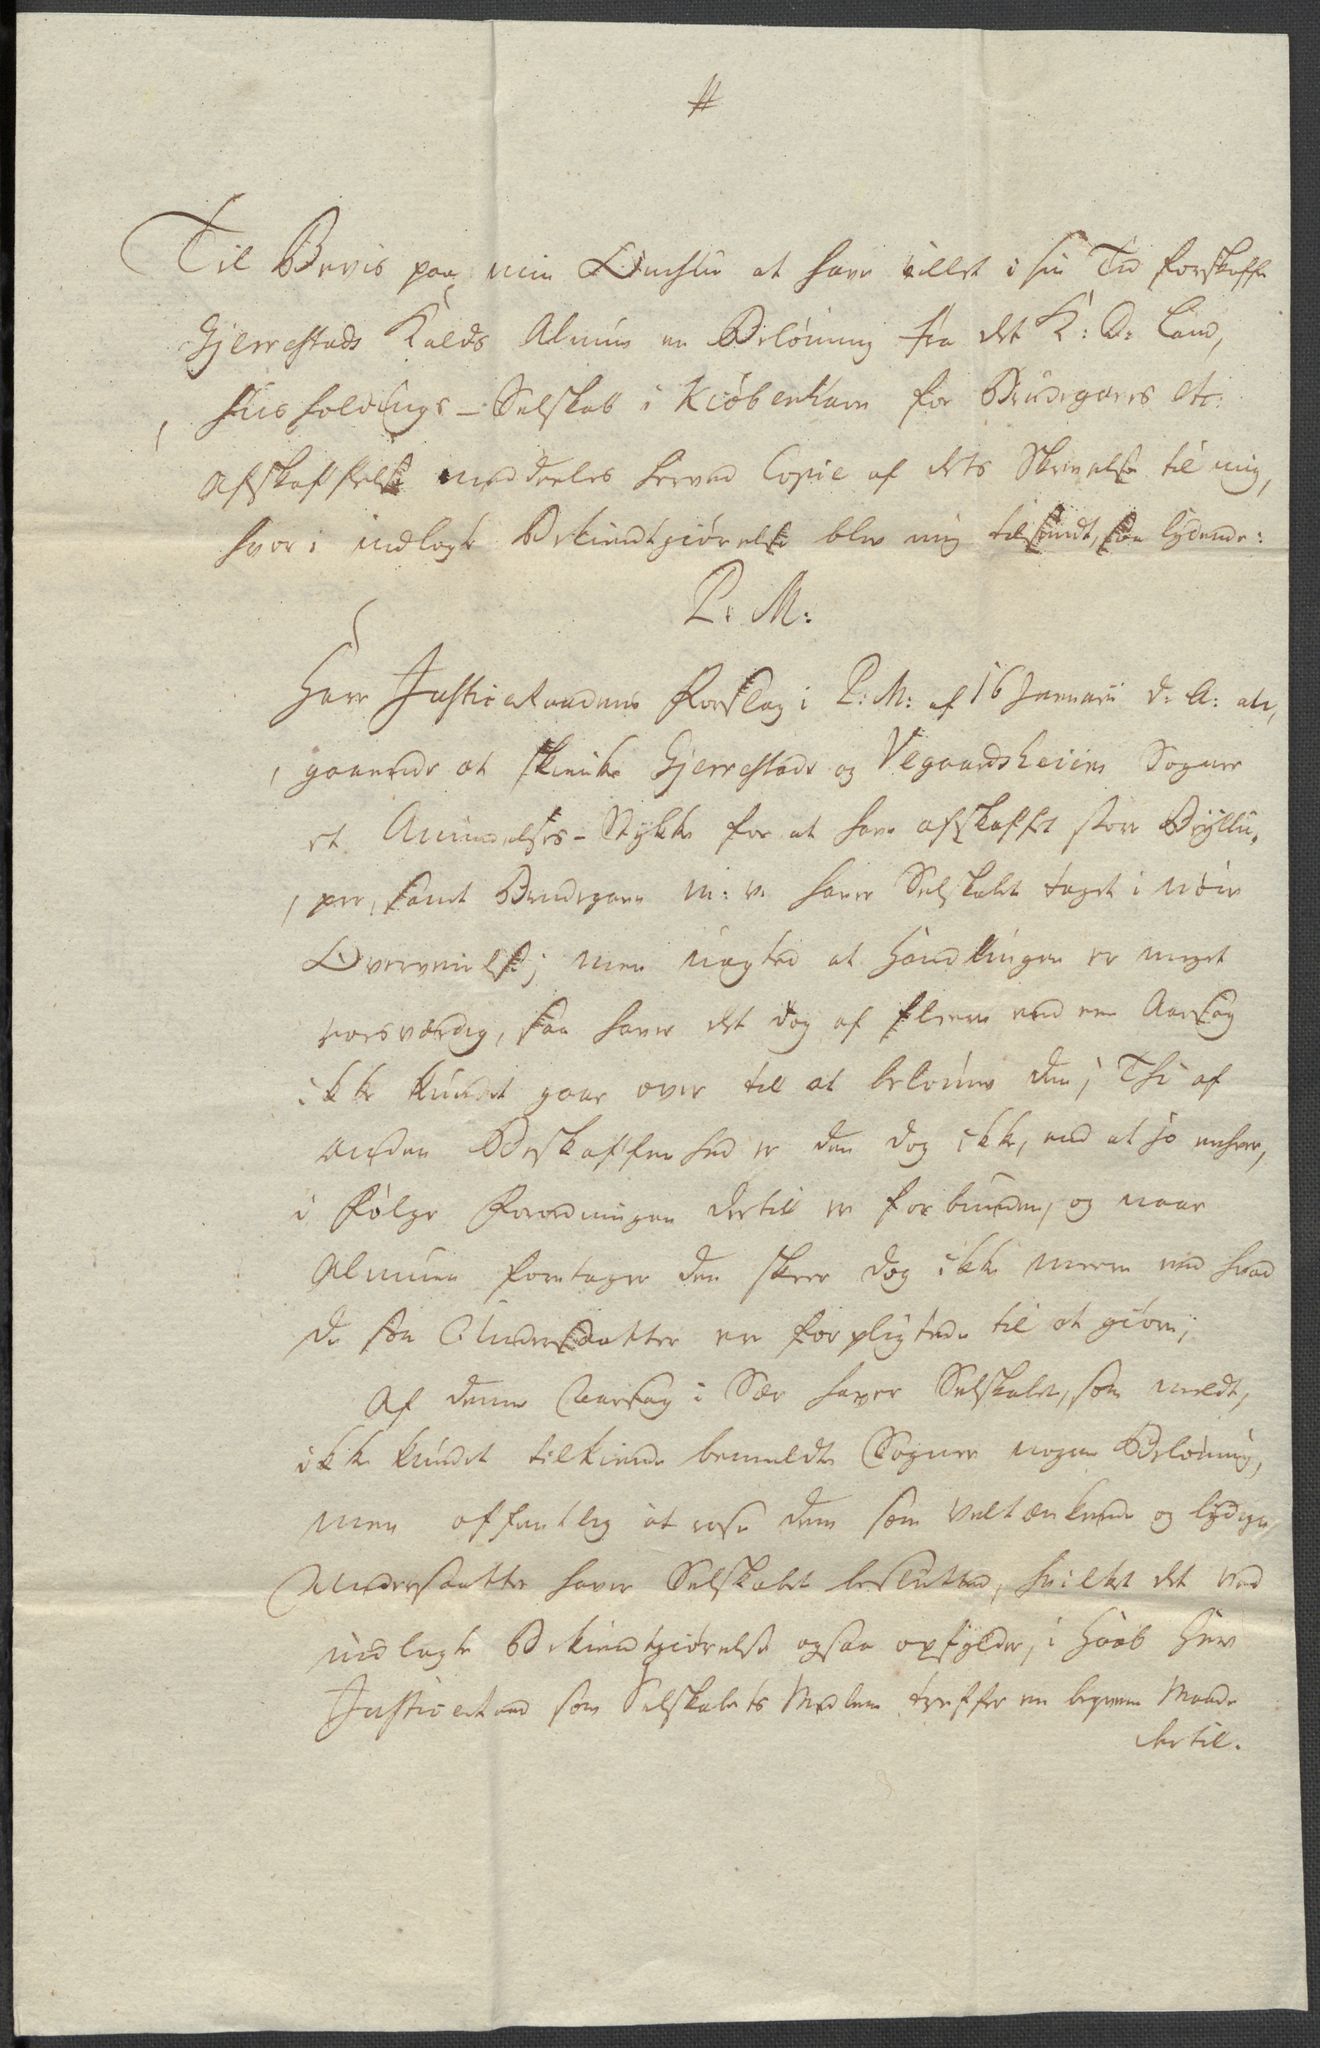 Til Beviis paa min Omhue at have villet i sin Tid forskaffe
Gjerrestads Kalds Almue en Belönning fra det K: D: Land,
huusholdings-Selskab i Kiöbenhavn for Brudegaves etc:
Afskaffelse meddeeles herved Copie af dets Skrivelse til mig,
hvori indlagte Bekiendtgiörelse blev mig tilsendt, saa lydende:
P: M:
Herr Justiceraadens Forslag i P: M: af 16 Januarii d: A: an,
gaaende at skienke Gjerrestads og Vegaardsheiens Sogner
et Amindelses-Stykke for at have afskaffet store Bryllu,
per, samt Brudegave m: v. haver Selskabet taget i nöie
Overveielse; men uagted at Handlingen er meget
roesværdig, saa haver det dog af fleere end en Aarsag
ikke kundet gaae over til at belönne den; Thi af
anden Beskaffenhed er den dog ikke, end at jo enhver,
i Fölge Forordningen dertil er forbunden, og naar
Almuen foretager den skeer dog ikke meere end hvad
de som Undersaatter ere forpligtede til at giöre;
Af denne Aarsag i Sær haver Selskabet, som meldt,
ikke kundet tilkiende bemeldte Sogner nogen Belönning,
men offentlig at rose dem som veltænkende og lydige
Undersaatter haver Selskabet besluttet, hvilket det ved
indlagte Bekiendtgiörelse ogsaa opfylder, i Haab Herr
Justiceraad som Selskabets Medlem treffer en beqvem Maade
dertil.